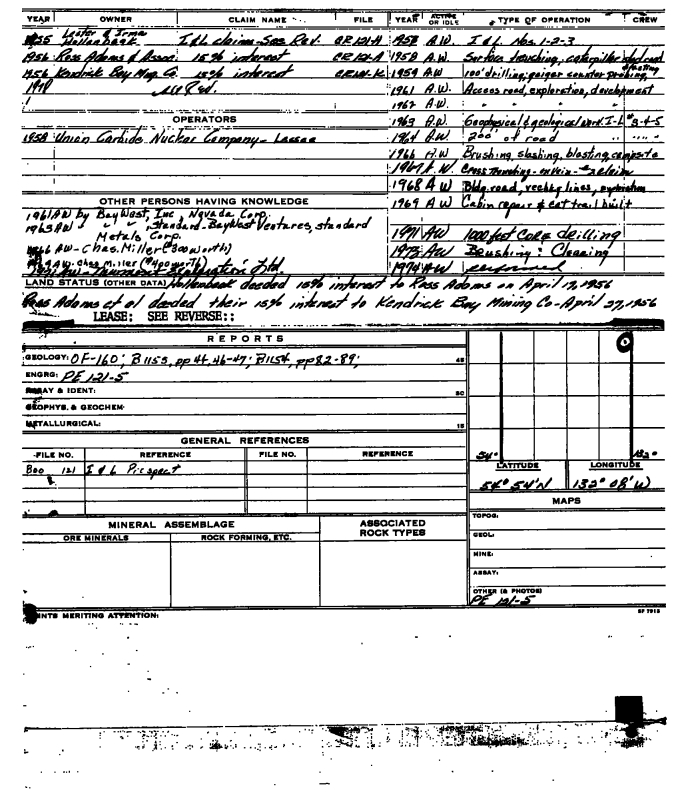 YEAR OWNER CLAIM NAME FILE YEAR ACTIVE OR IDLE TYPE OF OPERATION CREW
1955 Lester & Irma Hollenbeck I & L claims-See Rev. CR 121-A 1958 A.W. I & L Nos. 1-2-3
1956 Ross Adams & Assoc. 15% interest CR 121-A 1958 A.W. Surface trenching, caterpillar
1956 Kendrick Bay Mng. Co. 15% interest 1959 A.W. 100' drilling, geiger counter probing
1961 A.W. Access road, exploration, development
1962 A.W. " " "
OPERATORS 1963 A.W. Geophysical & geological work. I-L #3-4-5
1958 Union Carbide Nuclear Company - Lessee 1964 A.W. 200' of road " " "
1966 A.W Brushing, slashing, blasting, campsite
1967 A.W. Cross trenching - on vein -
1968 A W Bldg. road,
OTHER PERSONS HAVING KNOWLEDGE 1969 A.W Cabin repair & cat trail built
1961 AW by BayWest, Inc, Nevada Corp.
1963 AW " " , Standard-BayWest Ventures, standard
Metals Corp. 1971 AW 1000 feet core drilling
1966 AW - Chas. Miller ($300 worth) 1973 AW Brushing: Clearing
AW. Chas Miller ($400 worth)
1974 AW performed
LAND STATUS (OTHER DATA) Hollenbeck deeded 15% interest to Ross Adams on April 17, 1956
Ross Adams et al deeded their 15% interest to Kendrick Bay Mining Co - April 27, 1956
LEASE: SEE REVERSE::
REPORTS
GEOLOGY: OF-160; B1155, pp 44, 46-47; B1154, pp 82-89; 45
ENGRG: PE 121-5
ASSAY & IDENT: 5C
GEOPHYS. & GEOCHEM.
METALLURGICAL: 15
GENERAL REFERENCES
FILE NO. REFERENCE FILE NO. REFERENCE 54° 132°
LATITUDE LONGITUDE
Boo 121 I & L Prospect
54° 54'N 132° 08' W
MAPS
MINERAL ASSEMBLAGE ASSOCIATED ROCK TYPES TOPOG:
ORE MINERALS ROCK FORMING, ETC. GEOL:
MINE:
ASSAY:
OTHER (& PHOTOS)
PE 121-5
MERITING ATTENTION: